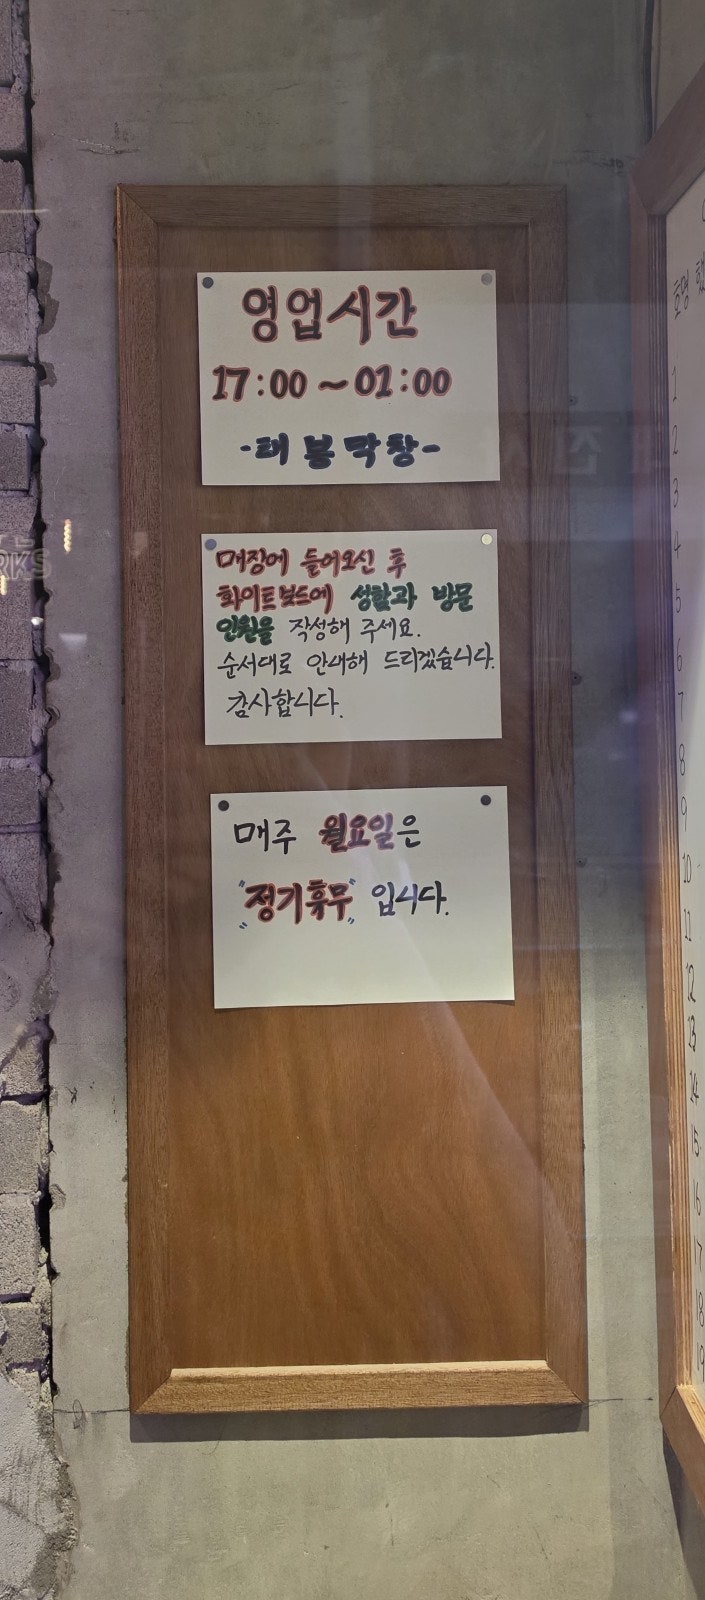 영업시간
17:00 ~ 01:00
-태봉막창-
매장에 들어오신 후
화이트보드에 성함과 방문
인원을 작성해 주세요.
순서대로 안내해 드리겠습니다.
감사합니다.
매주 월요일은
"정기휴무" 입니다.
호명
1
2
3
4
5
6
7
8
9
10
11
12
13
14
15
16
17
18
19